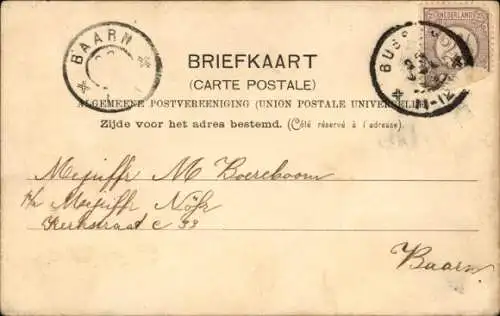 BAARN
NEDERLAND
BRIEFKAART
(CARTE POSTALE)
ALGEMEENE POSTVEREENIGING (UNION POSTALE UNIVERSELLE)
Zijde voor het adres bestemd. (Côté réservé à l'adresse).
Mejuffr M Boereboom
p/a Mejuffr
Kerkstraat C 33
Baarn